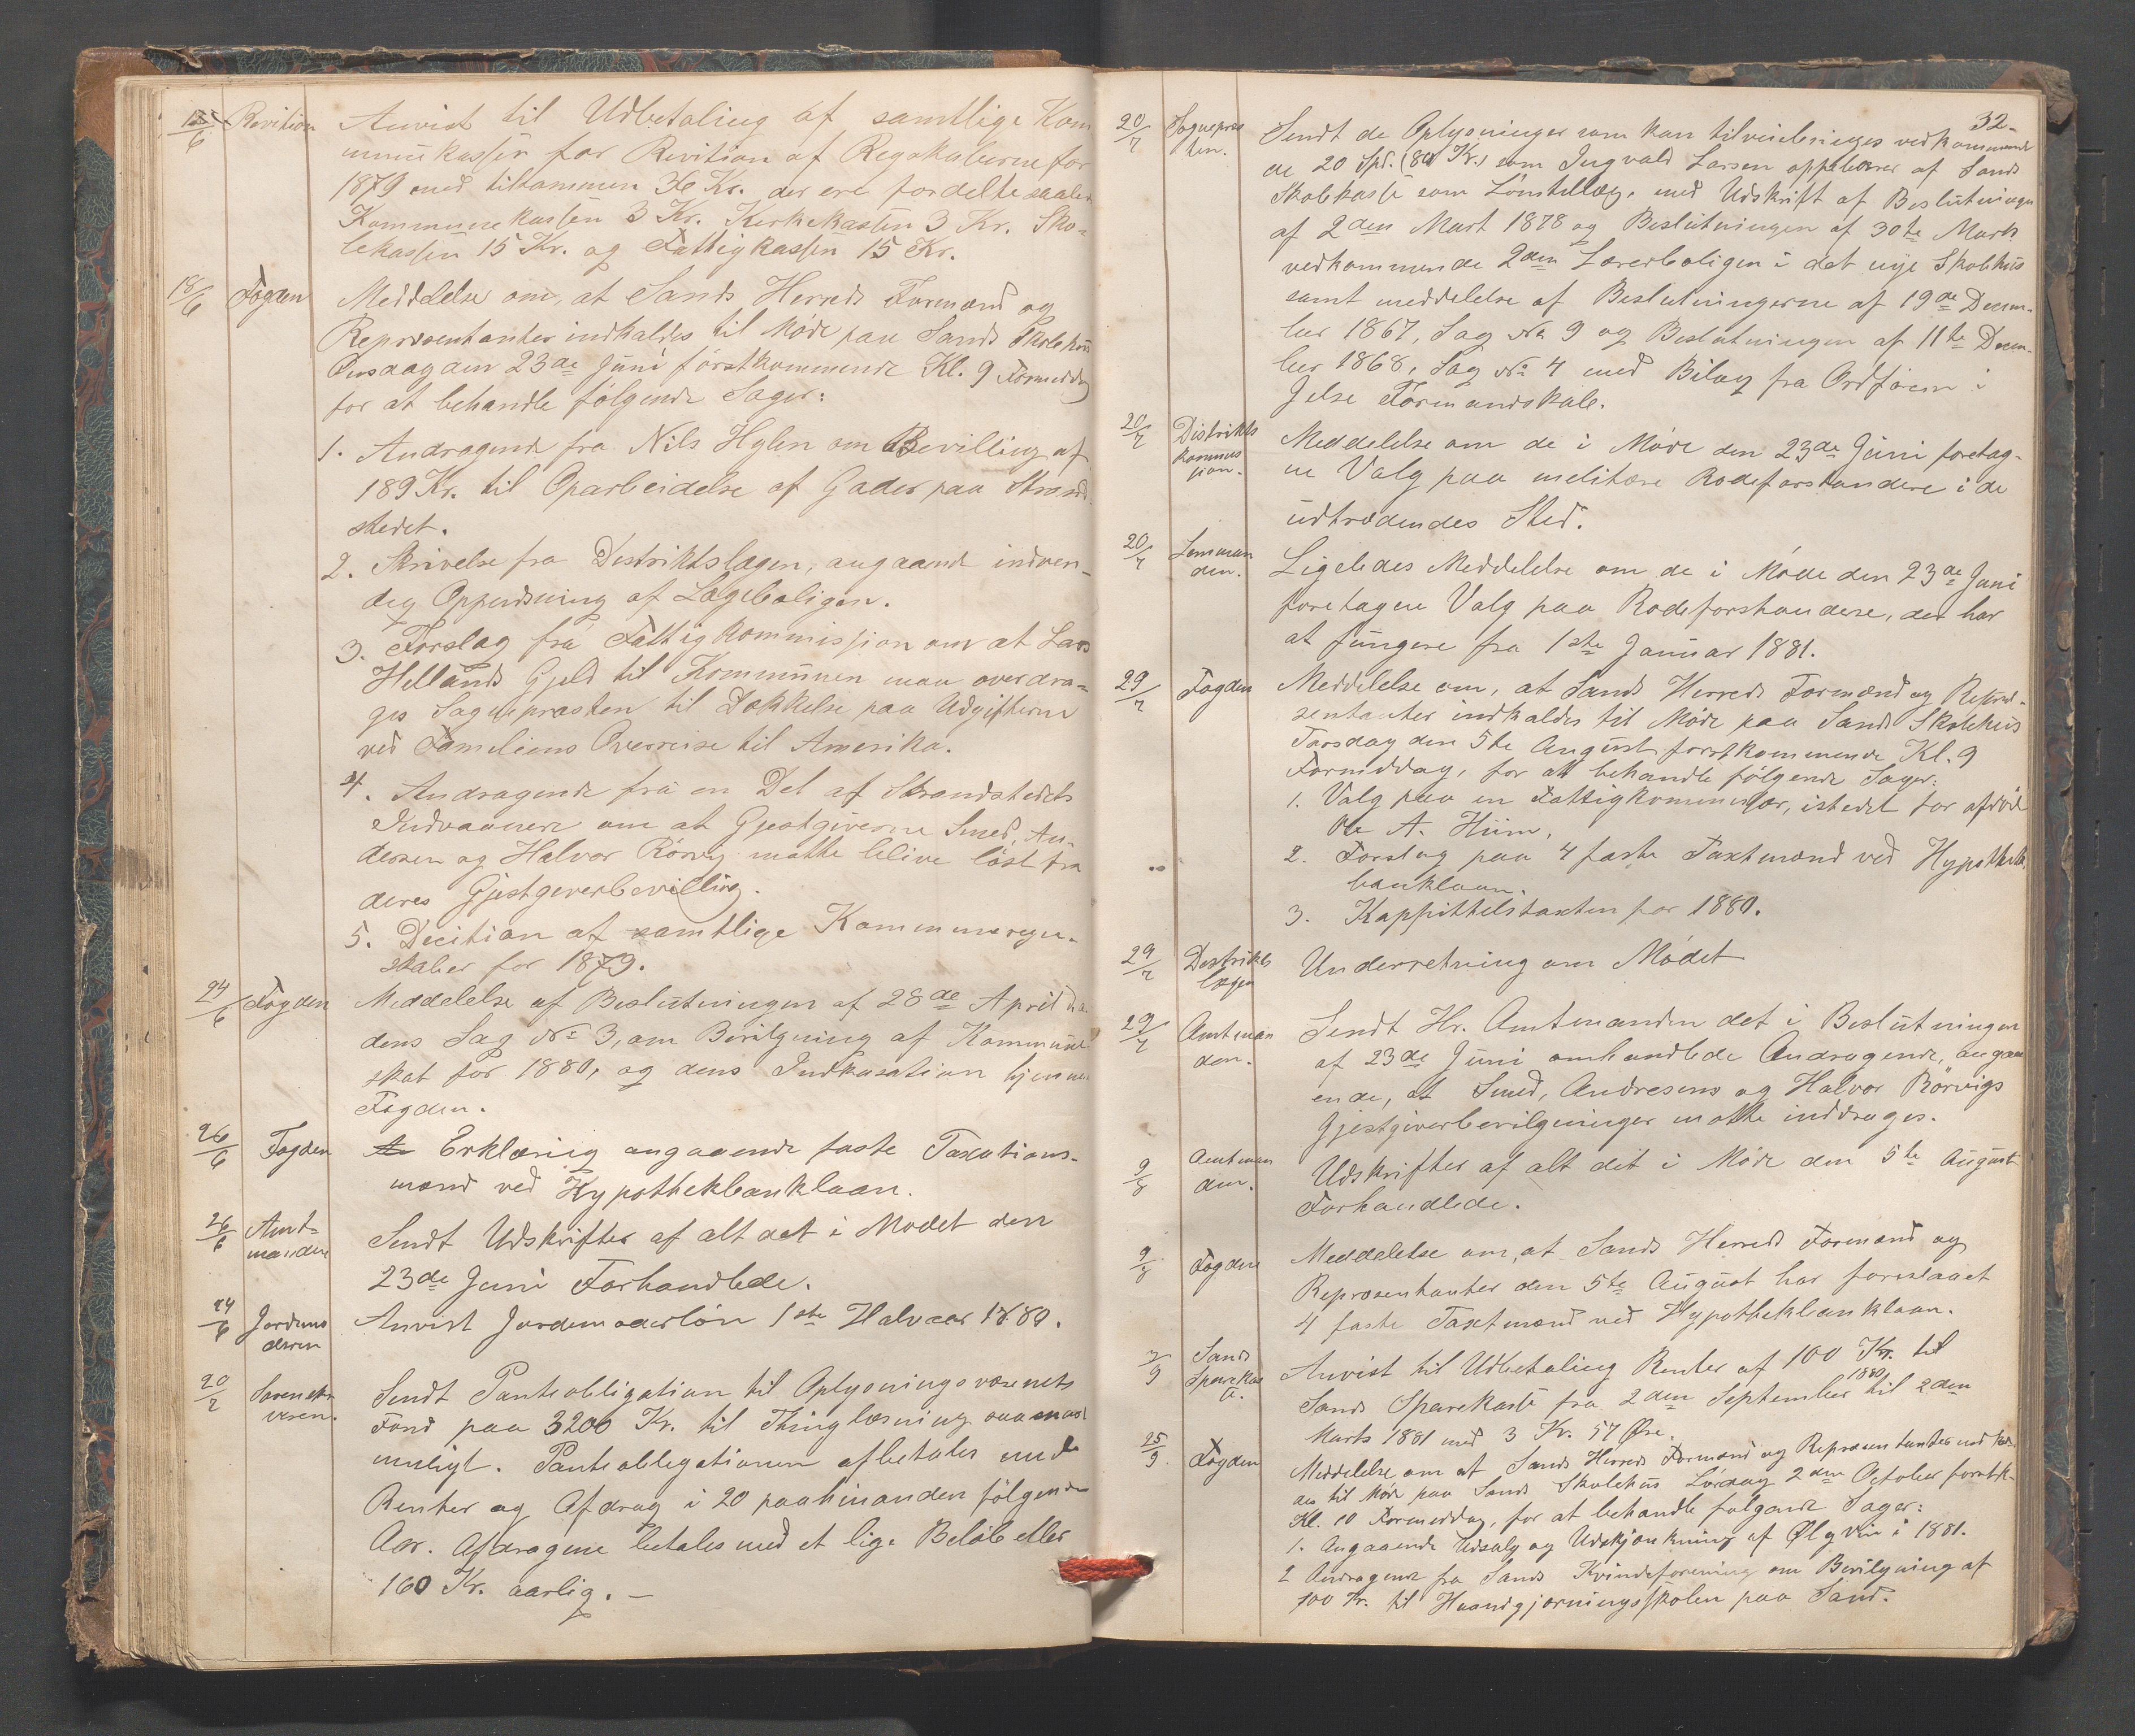 18/6 Revition Anvist til Udbetaling af samtlige Kom
munekassen for Revition af Regnskaberne for
1879 med tilsammen 36 Kr. der ere fordelte saaled
Kommunekassen 3 Kr. Kirkekassen 3 Kr. Sko-
lekassen 15 Kr. og Fattigkassen 15 Kr.
18/6 Fogden Meddelelse om, at Sands Herreds Formænd og
Repræsentanter indkaldes til Møde paa Sands Skolehus
Onsdag den 23de Juni førstkommende Kl. 9 Formiddag
for at behandle følgende Sager:
1. Andragende fra Nils Hylen om Bevilling af
189 Kr. til Oparbeidelse af Gader paa Strand
stedet.
2. Skrivelse fra Distriktslægen, angaaende indven-
dig Oppudsning af Lægeboligen.
3. Forslag fra Fattigkommissjon om at Lars
Hellands Gjeld til Kommunen maa overdra-
ges Sognepræsten til Dækkelse paa Udgifterne
ved Familiens Overreise til Amerika.
4. Andragende fra en Del af Strandstedets
Indvaanere om at Gjestgiverne Smed, An-
dersen og Halvor Rørvig matte blive løst fra
deres Gjestgeverbevilling.
5. Decition af samtlige Kommuneregn-
skaber for 1879.
24/6 Fogden Meddelelse af Beslutningen af 28de April
dens Sag No 3, om Bevilgning af Kommune
skat for 1880, og dens Indkasation hjennem
Fogden.
26/6 Fogden Erklæring angaaende faste Taxations-
mænd ved Hypothekbanklaan.
26/6 Amt-
manden Sendt Udskrifter af alt det i Mødet den
23de Juni Forhandlede.
24/6 Jordmo
deren Anvist Jordemoderløn 1ste Halvaar 1880.
20/7 Sorenskri
veren. Sendt Panteobligation til Oplysningsvæsenets
Fond paa 3200 Kr. til Thinglæsning saa snart
muligt. Panteobligationen afbetales med
Renter og Afdrag i 20 paahinanden følgende
Aar. Afdragene betales med et lige Beløb eller
160 Kr. aarlig. -
32-
20/7 Sognepræs
ten. Sendt de Oplysninger som kan tilveiebringes vedkommende
de 20 Spd. (80 Kr.) som Ingvald Larsen oppebærer af Sands
Skolekasse som Lønstillæg, med Udskrift af Beslutningen
af 2den Mart 1878 og Beslutningen af 30te Marts
vedkommende 2den Lærerboligen i det nye Skolehus
samt meddelelse af Beslutningerne af 19de Decem-
ber 1867, Sag No 9 og Beslutningen af 11te Decem-
ber 1868, Sag No 4 med Bilag fra Ordføren i
Jelse Formandskab.
20/7 Distrikts
kommis
sjon. Meddelelse om de i Møde den 23de Juni foretag-
ne Valg paa melitære Rodeforstandere i de
udtrædendes Sted.
20/7 Lensman
den. Ligeledes Meddelelse om de i Møde den 23de Juni
foretagne Valg paa Rodeforstandere, der har
at fungere fra 1ste Januar 1881.
29/7 Fogden Meddelelse om, at Sands Herreds Formænd og Repræ-
sentanter indkaldes til Møde paa Sands Skolehus
Torsdag den 5te August førstkommende Kl. 9
Formiddag, for at behandle følgende Sager:
1. Valg paa en Fattigkommisær, istedet for afdød
Ole A. Hiim.
2. Forslag paa 4 faste Taxtmænd ved Hypothek
banklaan.
3. Kappittelstaxten for 1880.
29/7 Destrikts
lægen Underretning om Mødet
29/7 Amtman
den. Sendt Hr. Amtmanden det i Beslutningen
af 23de Juni omhandlede Andragende, angaa
ende, at Smed, Andresens og Halvor Rørvigs
Gjestgiverbevilgninger matte inddrages.
9/8 Amtman
den. Udskrifter af alt det i Møde den 5te August
Forhandlede.
9/8 Fogden Meddelelse om, at Sands Herreds Formænd og
Repræsentanter den 5te August har foreslaaet
4 faste Taxtmænd ved Hypothekbanklaan.
7/9 Sands
Sparekas
se. Anvist til Udbetaling Renter af 100 Kr. til
Sands Sparekasse fra 2den September 1880 til 2den
Marts 1881 med 3 Kr. 57 Øre.
25/9. Fogden Meddelelse om at Sands Herreds Formænd og Repræsentanter
des til Møde paa Sands Skolehus Lørdag 2den October førstk.
Kl. 10 Formiddag, for at behandle følgende Sager:
1. Angaaende Udsalg og Udskjænkning af Øl og Vin i 1881.
2 Andragende fra Sands Kvindeforening om Bevilgning af
100 Kr. til Haandgjerningsskolen paa Sand.